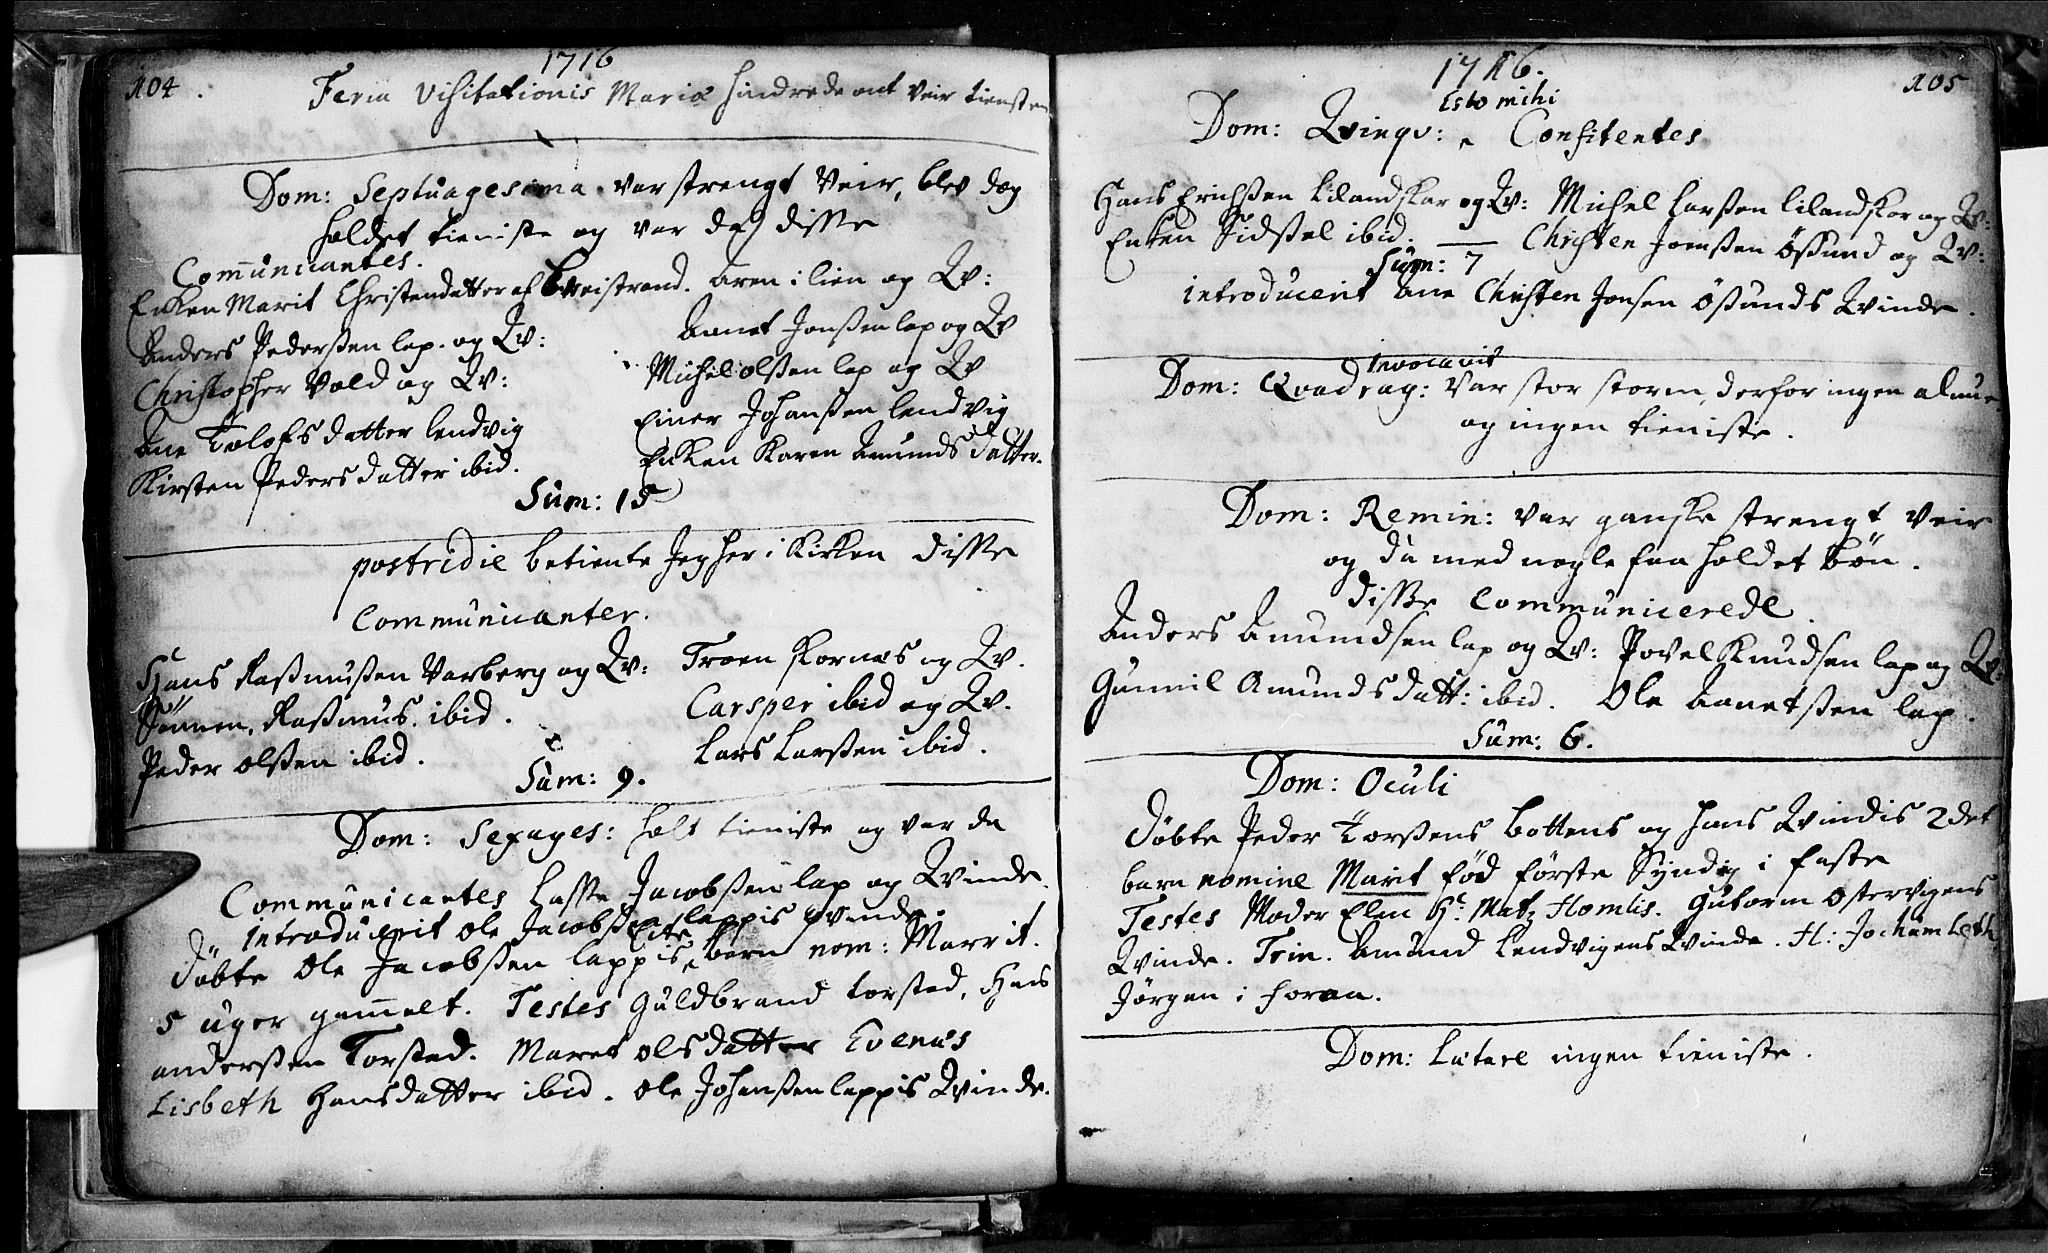 1716
104.
Feria Visitationis Mariæ hindrede ont Veir tiensten
Dom: Septuagesima var strengt Veir, blev dog
holdet tieniste og var da disse
Communicantes.
Enken Marit Christendatter af Breistrand. Aren i lien og Qv:
Anders Pederßen lap. og Qv:
Aanet Jonßen lap og Qv
Christopher Vold og Qv:
Michel olßen lap og Qv
Ane Tolofs datter lendvig
Einer Johanßen lendvig
Kirsten Peders datter ibid.
Enken Karen Amunds datter.
Sum: 15
postridie betiente Jeg her i Kirken disse
Communicanter.
Hans Raßmußen Varberg og Qv:
Troen Kornes og Qv.
Sønnen, Raßmus. ibid.
Carsper ibid og Qv.
Peder olßen ibid.
Lars Larßen ibid.
Sum: 9.
Dom: Sexages: holt tieniste og var da
Communicantes Lasse Jacobßen lap og Qvinde.
introducerit ole Jacobß lappis qvinde.
Døbte Ole Jacobßen lappis Eite barn nom: Marrit.
5 uger gamelt. Testes Guldbrand torsted, Hans
anderßen Torsted. Maret ols datter Evenæs
Lisbeth Hansdatter ibid. ole Johanßen lappis Qvinde.
1716.
105
Esto mihi
Dom: Qvinqv: Confitentes
Hans Erichßen Lilandskar og Qv: Michel Larßen lilandskar og Qv:
Enken Sidsel ibid. — Christen Joenßen Ößund og Qv:
Sum: 7
introducerit Ane Christen Jonsen Ößunds Qvinde.
Invocavit
Dom: Qvadrag: Var stor storm, derfor ingen almue
og ingen tieniste.
Dom: Remin: var ganske strengt Veir
og da med nogle faa holdet bøn.
disse Communicerede.
Anders Amundsen lap og Qv: Povel Knudsen lap og Qv:
Gunnil Amunds datt: ibid. Ole Aanetßen lap.
Sum: 6.
Dom: Oculi
Døbte Peder Larßens bottens og hans Qvindis 2det
barn nomine Marit fød første Syndag i faste
Testes Moder Elen Hr Matz Homlis. Gutorm Ostervigens
Qvinde. Trin. Amund Lendvigens Qvinde. H: Jochum Leth
Jörgen i foraa.
Dom: Lætare ingen tieniste.